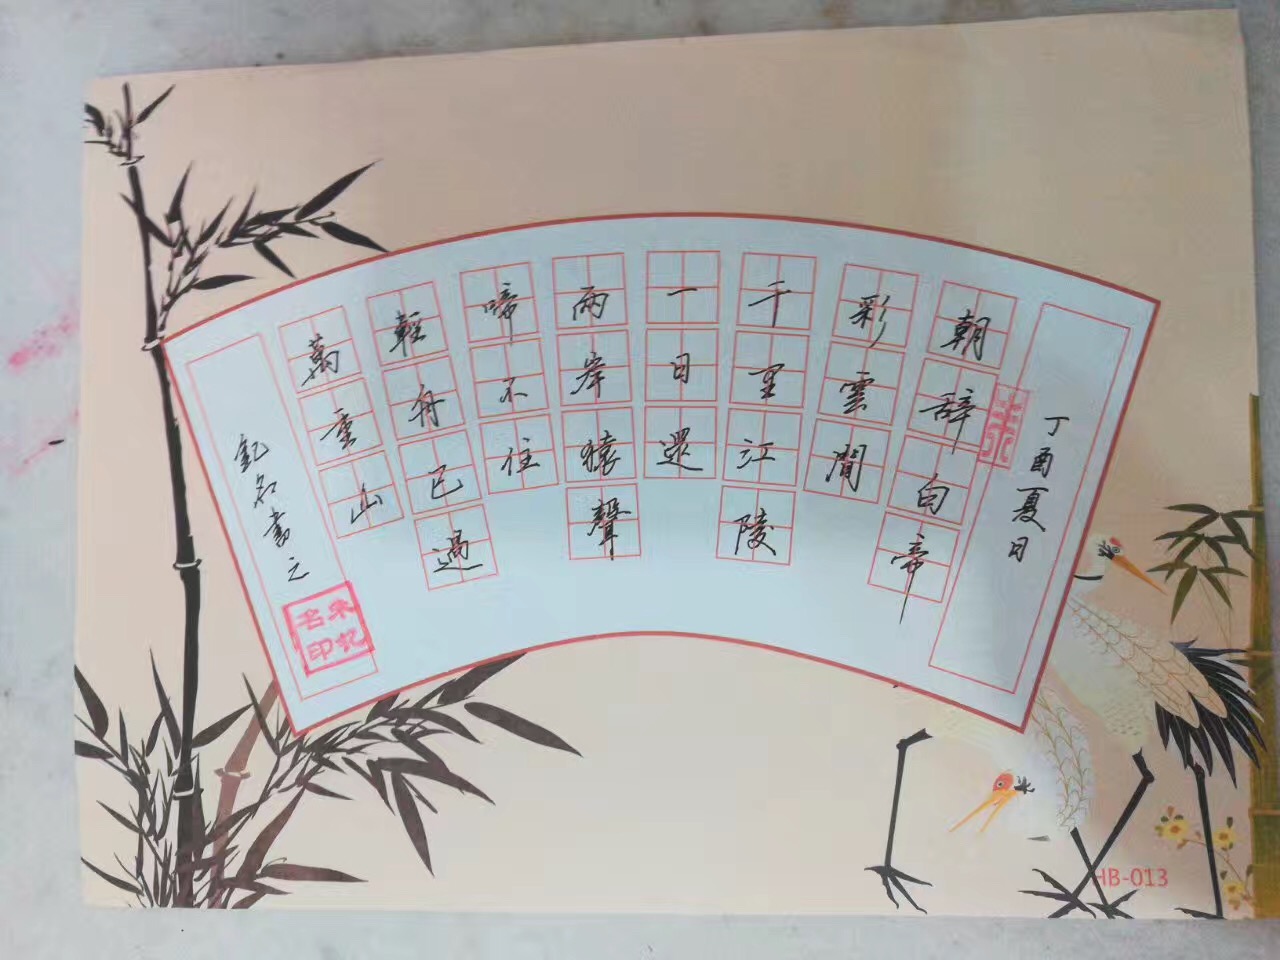 丁酉夏日
朝辞白帝
彩雲間
千里江陵
一日還
兩岸猿聲
啼不住
輕舟已過
萬重山
名書之
HB-013